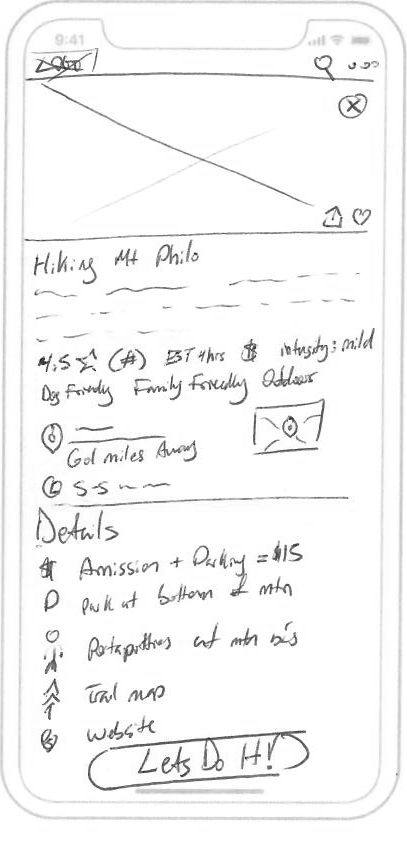 9:41
Logo
Hiking Mt Philo
4.5 (#) EST 4hrs $ intensity: mild
Dog Friendly Family Friendly Outdoors
miles Away
S-S
Details
$ Amission + Parking = $15
P park at bottom of mtn
at mtn
Trail map
website
Lets Do It!